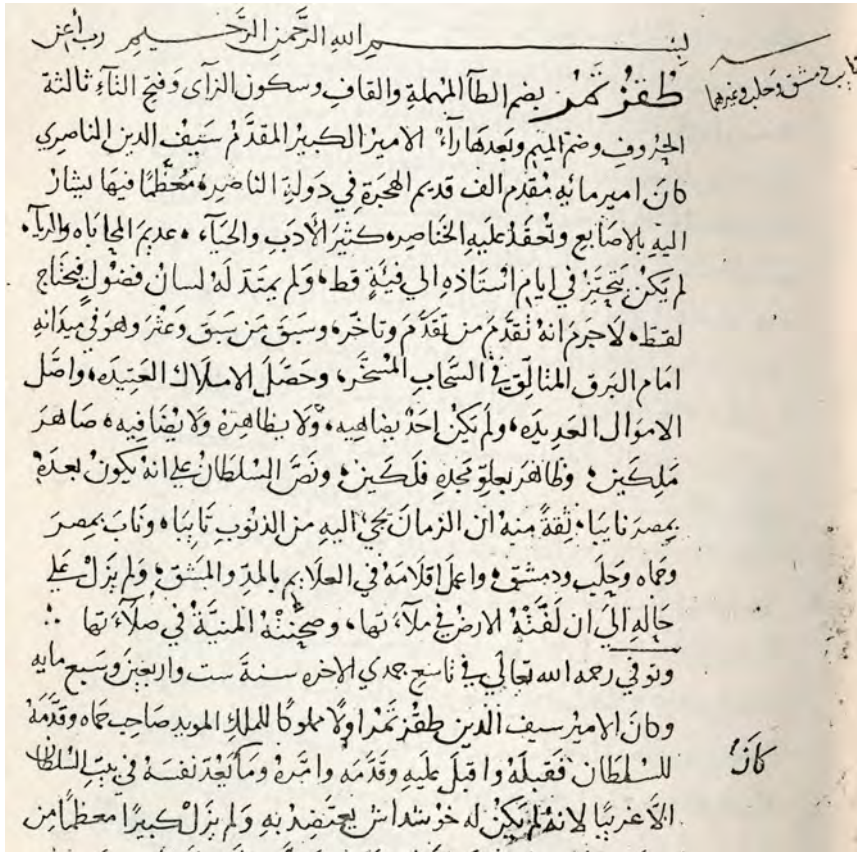 بسم الله الرحمن الرحيم رب أعن
نايب دمشق وحلب وغيرهما
طُقُزْتَمُر بضم الطآ المهملة والقاف وسكون الزآى وَفتح التآءِ ثالثة
الحروف وضم الميم وبَعدهَا رآء الامير الكبير المقدَّم سَيف الدين الناصري
كانَ امير مائه مُقدم الف قديم الهجرة في دَولة الناصر، مُعظَّمًا فيهَا يشار
اليهِ بالاصَابع وتُعقَد عليهِ الخناصر، كثيرَ الأدَب والحيَآء، عديمَ المحابَاه والريآء،
لم يَكن يتحيَّز في ايام استَاذهِ الى فيَةٍ قط، وَلم يمتد لَهُ لسان فضولٍ فيحتاج
لقط، لَا جرَم انه تقدَّمَ من تقَدَّم وتاخر، وسبَقَ مَن سَبَق وَعثرَ وهوَ في ميدَانهِ
امَام البَرق المتالِّق في السَّحابِ المسَخَّر، وحَصَّل الاملاك العَتِيدَه، واصَّل
الاموَال العَديدَه، ولم يَكن احَدٌ يضاهيه، وَلا يظاهرهُ ولا يُضَافيه، صَاهرَ
مَلِكَين، وظاهَر بعلوِّ مجدهِ فلَكَين، ونصَّ السُلطانُ على انه يَكون بعدَهُ
بمِصرَ نايبَا، ثقةً منهُ ان الزمانَ يجئ اليهِ من الذنوبِ تَايبَا، ونَابَ بمِصرَ
وحَماه وحَلَب ودمشق، واعملَ اقلَامَهُ في العلَايم بالمدِّ والمشق، وَلم يزَل على
حَالِهِ الىَ ان لَفَّتهُ الارض في مُلآءَتها، وصحَّنتهُ المنيَّة في صلَآءَتها
وتوفي رحمه الله تعالى في تاسع جمدي الاخره سنة ست واربعين وسَبع مايه
وكانَ الامير سيف الدين طقزتمر اولًا مملوكًا للملك المويد صَاحب حَماه وقدَّمَهُ
للسُلطان فقَبلهُ واقبَل عليَهِ وقدَّمَه وامَّره وَمَا يَعُد نفسَهُ في بيت السُلطان
كانَ
الاَّ غريبًا لانهُ لم يَكن له خوشداش يعتضد بهِ وَلم يزَل كبيرًا معظمًا من